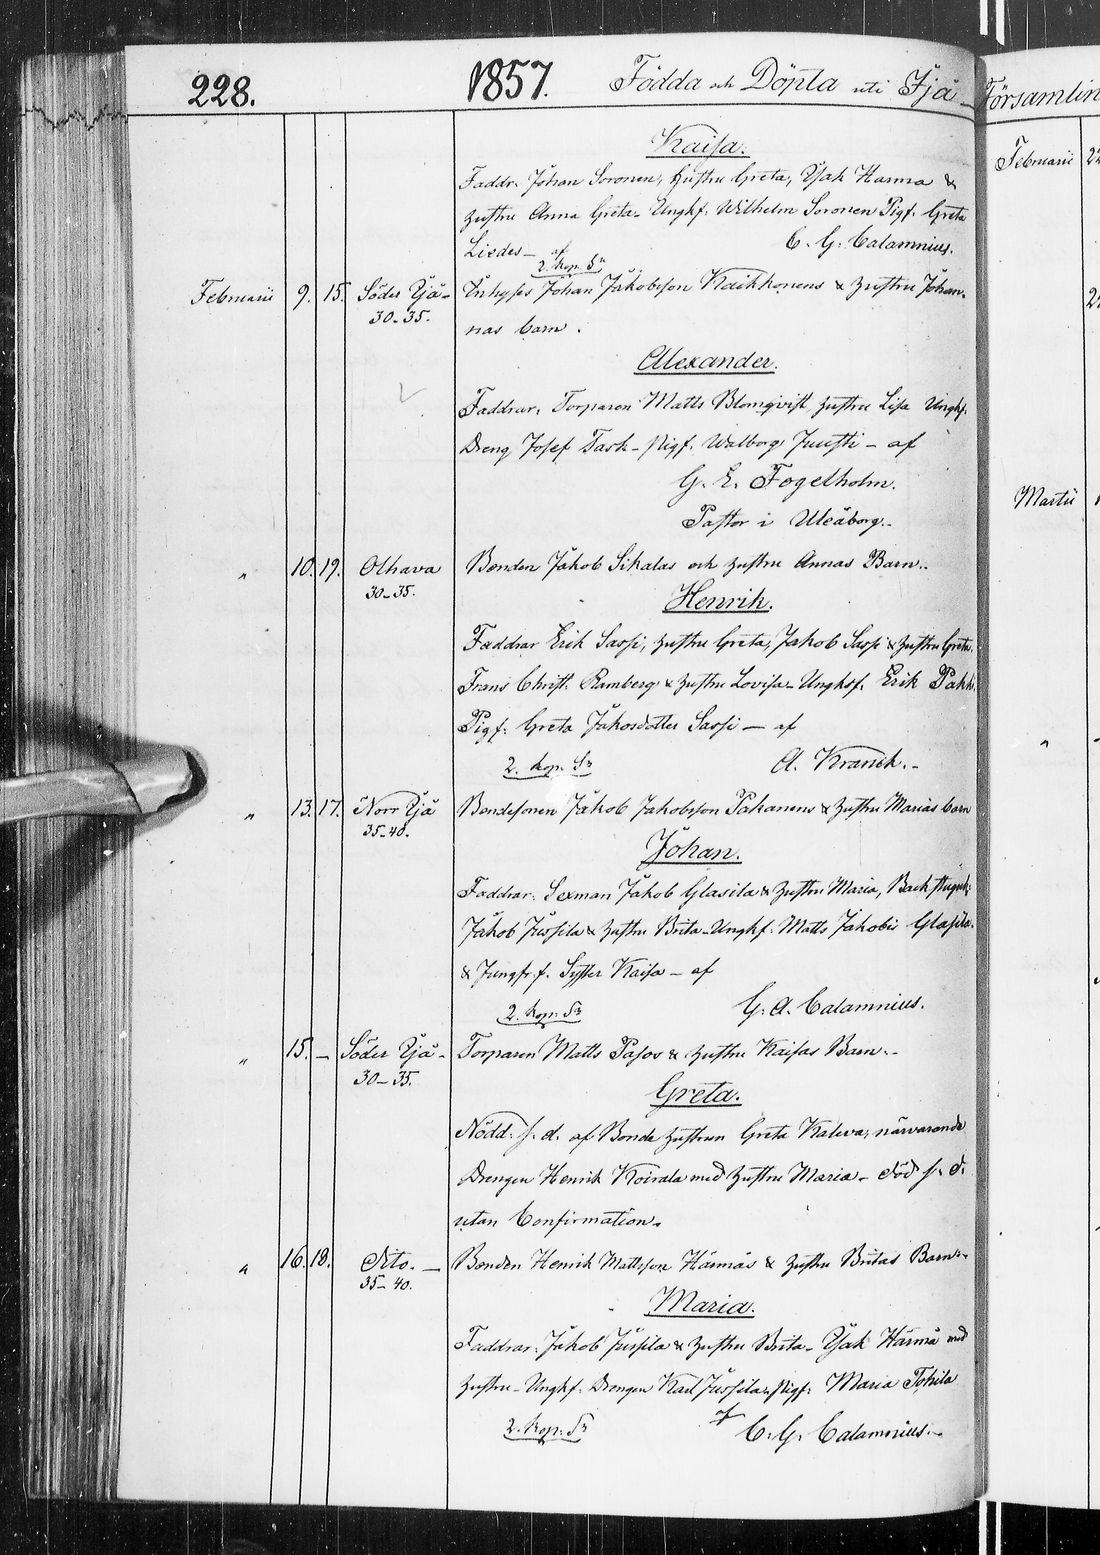 228. 1857. Födda och Döpta uti Ijå Församlin
Kaisa.
Faddr. Johan Soronen, hustru Greta, Isak Harma &
hustru Anna Greta - Ungkf. Wilhelm Soronen Pigf. Greta
Liedes - af C. G. Calamnius.
2. kop. Sr
Februarii 9. 15. Söder Ijå - Inhyses Johan Jakobsson Kaikkonens & hustru Johan-
30-35. nas barn.
Alexander.
Faddrar. Torparen Matts Blomqvist, hustru Lisa Ungkf.
Dreng Josef Task - Pigf. Walborg Juusti - af
G. E. Fogelholm.
Pastor i Uleåborg.-
" 10. 19. Olhava Bonden Jakob Sikalas och hustru Annas Barn..
30-35. Henrik.
Faddrar Erik Sassi, hustru Greta, Jakob Sassi & hustru Greta.
Frans Christ. Ramberg & hustru Lovisa - Ungkf. Erik
Pigf: Greta Jakobsdotter Sassi - af
2. kop. Sr A. Kranck.-
" 13. 17. Norr Ijå Bondesonen Jakob Jakobsson Pakanens & hustru Marias barn
35-40. Johan.
Faddrar: Sexman Jakob Glasila & hustru Maria,
Jakob Jussila & hustru Brita - Ungkf: Matts Jakobss Glasila.
& Jungfr.f. Syster Kaisa - af
2. kop. Sr G. A. Calamnius.
" 15. - Söder Ijå - Torparen Matts Pasos & hustru Kaisas Barn.-
30-35. Greta.
Nödd. s. d. af Bonde hustrun Greta Kaleva, närvarande
Drengen Henrik Koirala med hustru Maria - död s. d.
utan Confirmation.
" 16. 18. Dito. - Bonden Henrik Mattsson Härmäs & hustru Britas Barn.-
35-40. Maria.
Faddrar: Jakob Jussila & hustru Brita - Isak Härmä med
hustru - Ungkf. Drengen Karl Jussila, Pigf: Maria Tohila
2. kop. Sr af C. G. Calamnius.-
Februarii 22
22
Martii
"